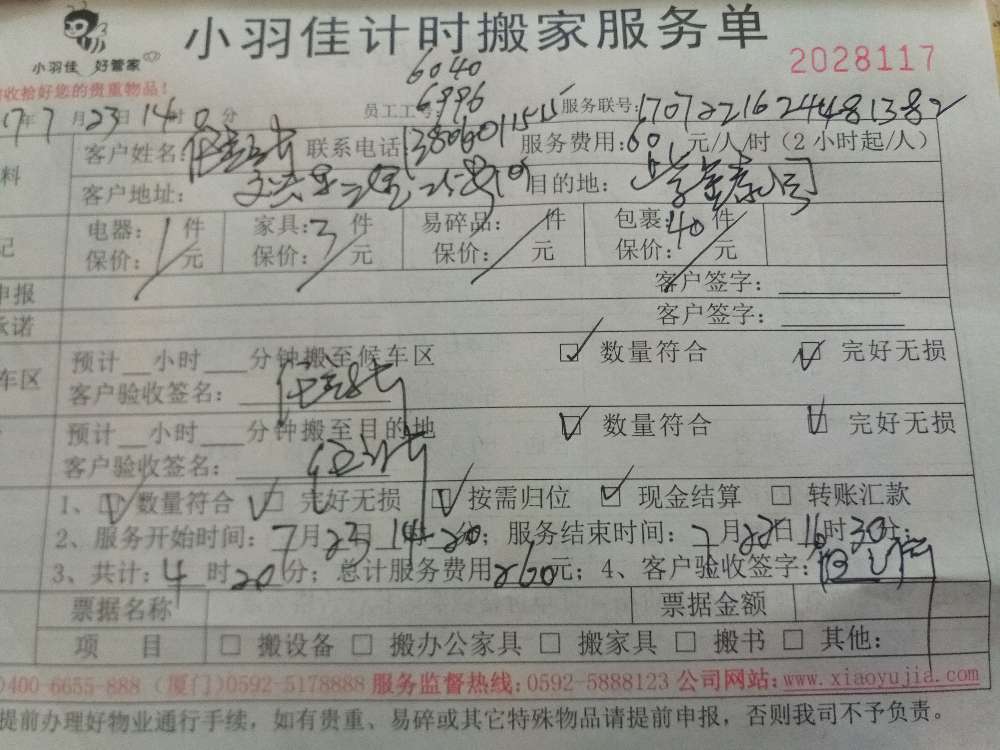 小羽佳计时搬家服务单
小羽佳 好管家
2028117
收拾好您的贵重物品！
6040
17年7月23日14时0分 员工工号:6996 服务联号:17072216244481382
客户姓名: 联系电话13806011515 服务费用:60元/人/时（2小时起/人）
客户地址: 目的地:
电器:1件 家具:3件 易碎品:/件 包裹:40件
保价:/元 保价:/元 保价:/元 保价:/元
申报 客户签字:
承诺 客户签字:
车区 预计__小时___分钟搬至候车区 ☑ 数量符合 ☑ 完好无损
客户验收签名:
预计__小时___分钟搬至目的地 ☑ 数量符合 ☑ 完好无损
客户验收签名:
1、☑数量符合 ☑完好无损 ☑按需归位 ☑现金结算 □转账汇款
2、服务开始时间:7月23日14时20分；服务结束时间:7月22日16时30分；
3、共计:4时20分；总计服务费用260元；4、客户验收签字:
票据名称 票据金额
项 目 □ 搬设备 □ 搬办公家具 □ 搬家具 □ 搬书 □ 其他:
400-6655-888（厦门)0592-5178888 服务监督热线:0592-5888123 公司网站:www.xiaoyujia.com
提前办理好物业通行手续，如有贵重、易碎或其它特殊物品请提前申报，否则我司不予负责。